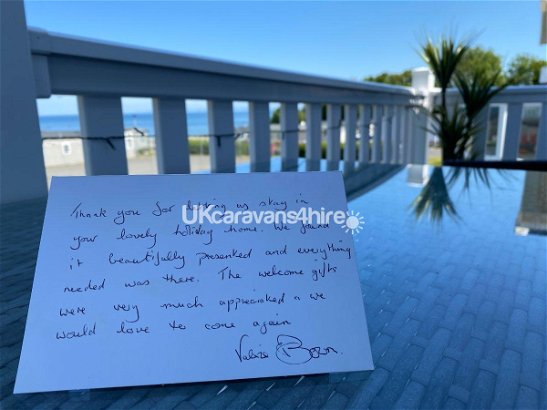 Thank you for letting us stay in
UKcaravans4hire
your lovely holiday home. We found
it beautifully presented and everything
needed was there. The welcome gifts
were very much appreciated & we
would love to come again